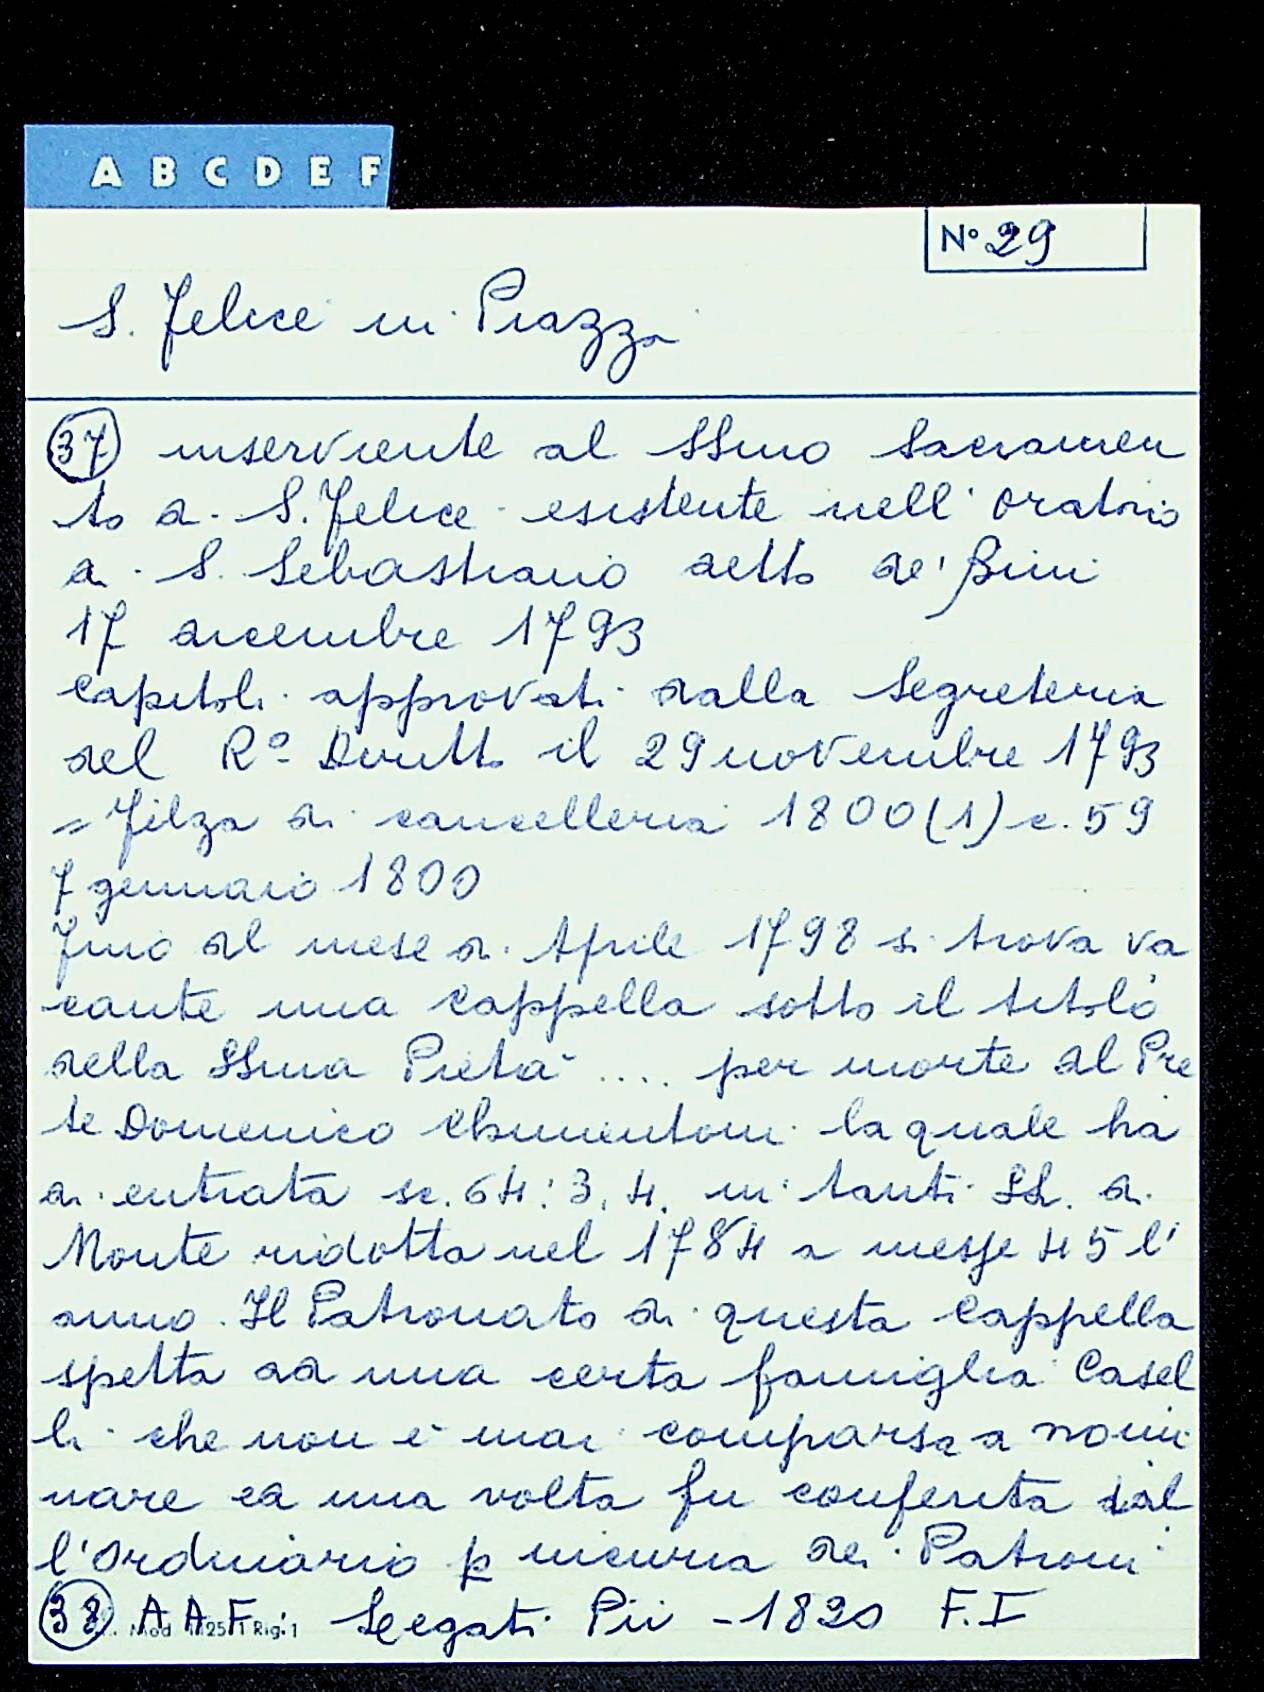 A B C D E F
N° 29
S. Felice in Piazza
37 inserviente al SSmo Sacramen
to di S. Felice esistente nell' oratorio
di S. Sebastiano detto de' Bini
17 dicembre 1793
Capitoli approvati dalla Segreteria
del R° Diritto il 29 novembre 1793
= Filza di cancelleria 1800 (1) c. 59
7 gennaio 1800
Fino al mese di Aprile 1798 si trova va
cante una Cappella sotto il titolo
della SSma Pietà .... per morte del Pre
te Domenico Chimentoni la quale ha
di entrata sc. 64:3.4. in tanti LL. di
Monte ridotta nel 1784 a messe 45 l'
anno. Il Patronato di questa Cappella
spetta ad una certa famiglia Casel
li che non è mai comparsa a nomi
nare ed una volta fu conferita dal
l'Ordinario p incuria dei Patroni
38 A A F: Legati Pii - 1820 F. I
Mod 1125/1 Rig. 1